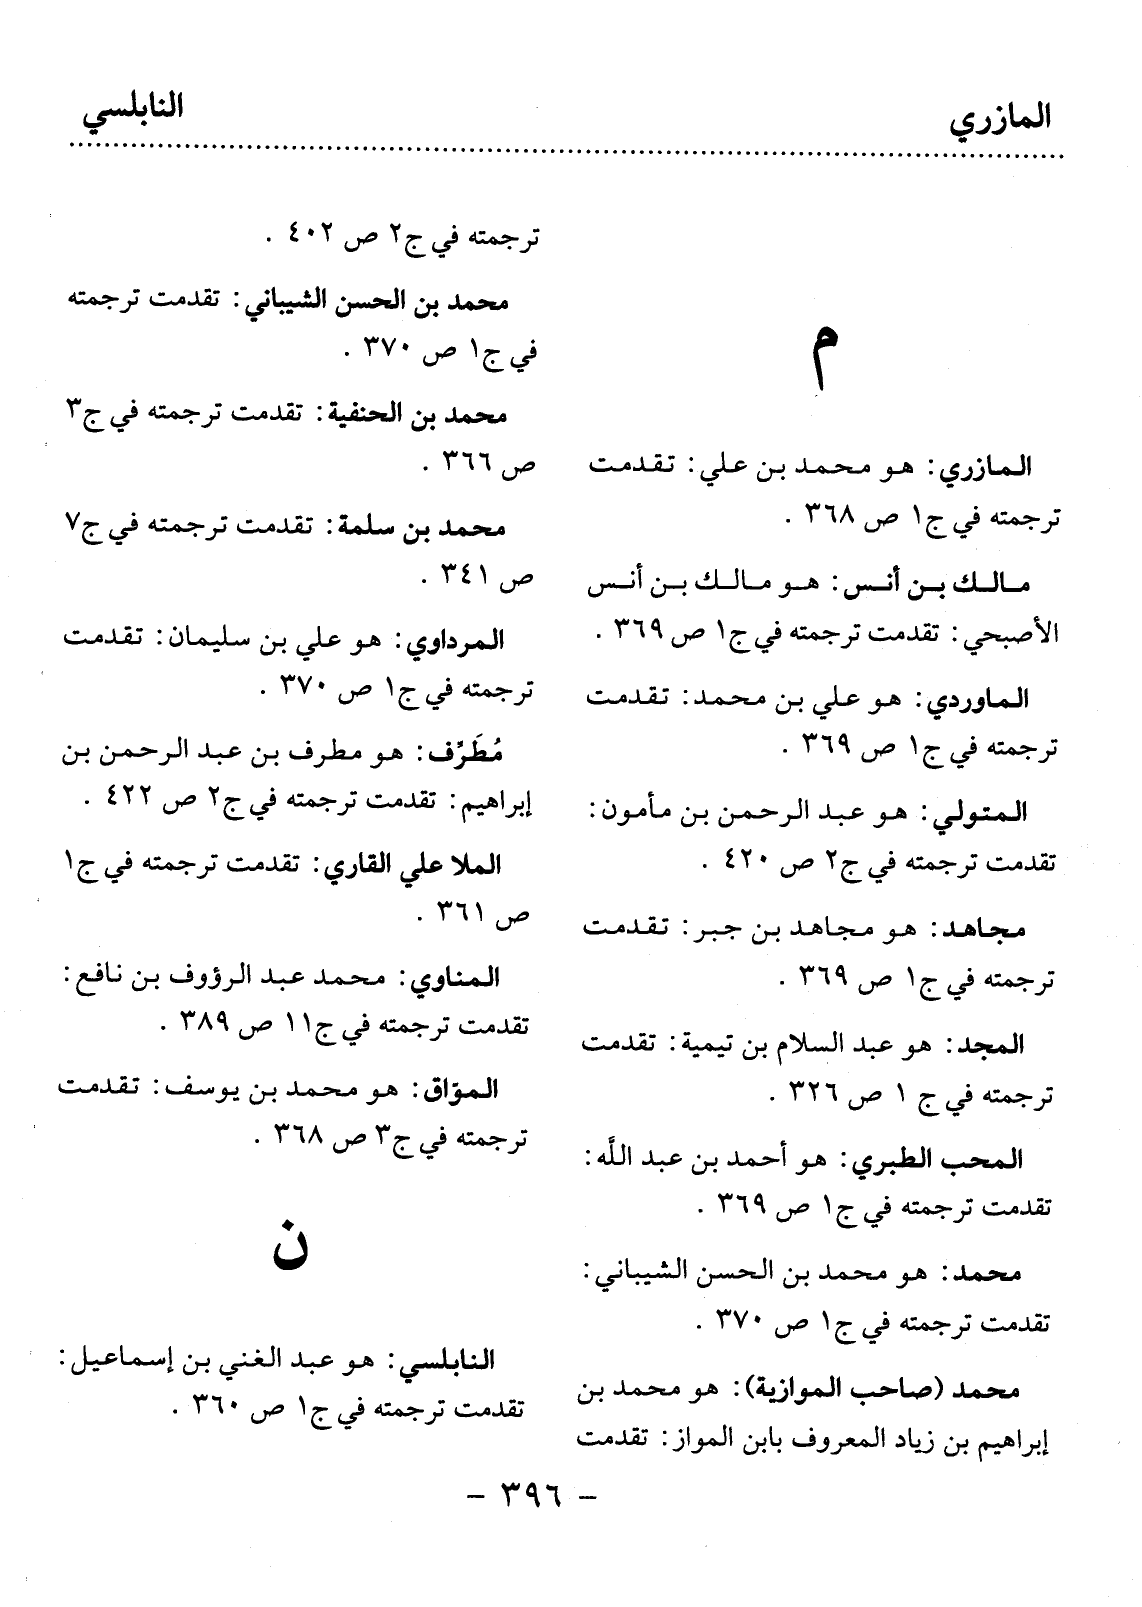 المازري
النابلسي
م
المازري: هو محمد بن علي: تقدمت
ترجمته في ج١ ص ٣٦٨ .
مالك بن أنس: هو مالك بن أنس
الأصبحي: تقدمت ترجمته في ج١ ص ٣٦٩ .
الماوردي: هو علي بن محمد: تقدمت
ترجمته في ج١ ص ٣٦٩ .
المتولي: هو عبد الرحمن بن مأمون:
تقدمت ترجمته في ج٢ ص ٤٢٠ .
مجاهد: هو مجاهد بن جبر: تقدمت
ترجمته في ج١ ص ٣٦٩ .
المجد: هو عبد السلام بن تيمية: تقدمت
ترجمته في ج ١ ص ٣٢٦ .
المحب الطبري: هو أحمد بن عبد اللَّه:
تقدمت ترجمته في ج١ ص ٣٦٩ .
محمد: هو محمد بن الحسن الشيباني:
تقدمت ترجمته في ج١ ص ٣٧٠ .
محمد (صاحب الموازية): هو محمد بن
إبراهيم بن زياد المعروف بابن المواز: تقدمت
ترجمته في ج٢ ص ٤٠٢ .
محمد بن الحسن الشيباني: تقدمت ترجمته
في ج١ ص ٣٧٠ .
محمد بن الحنفية: تقدمت ترجمته في ج٣
ص ٣٦٦ .
محمد بن سلمة: تقدمت ترجمته في ج٧
ص ٣٤١ .
المرداوي: هو علي بن سليمان: تقدمت
ترجمته في ج١ ص ٣٧٠ .
مُطَرِّف: هو مطرف بن عبد الرحمن بن
إبراهيم: تقدمت ترجمته في ج٢ ص ٤٢٢ .
الملا علي القاري: تقدمت ترجمته في ج١
ص ٣٦١ .
المناوي: محمد عبد الرؤوف بن نافع:
تقدمت ترجمته في ج١١ ص ٣٨٩ .
المواق: هو محمد بن يوسف: تقدمت
ترجمته في ج٣ ص ٣٦٨ .
ن
النابلسي: هو عبد الغني بن إسماعيل:
تقدمت ترجمته في ج١ ص ٣٦٠ .
- ٣٩٦ -